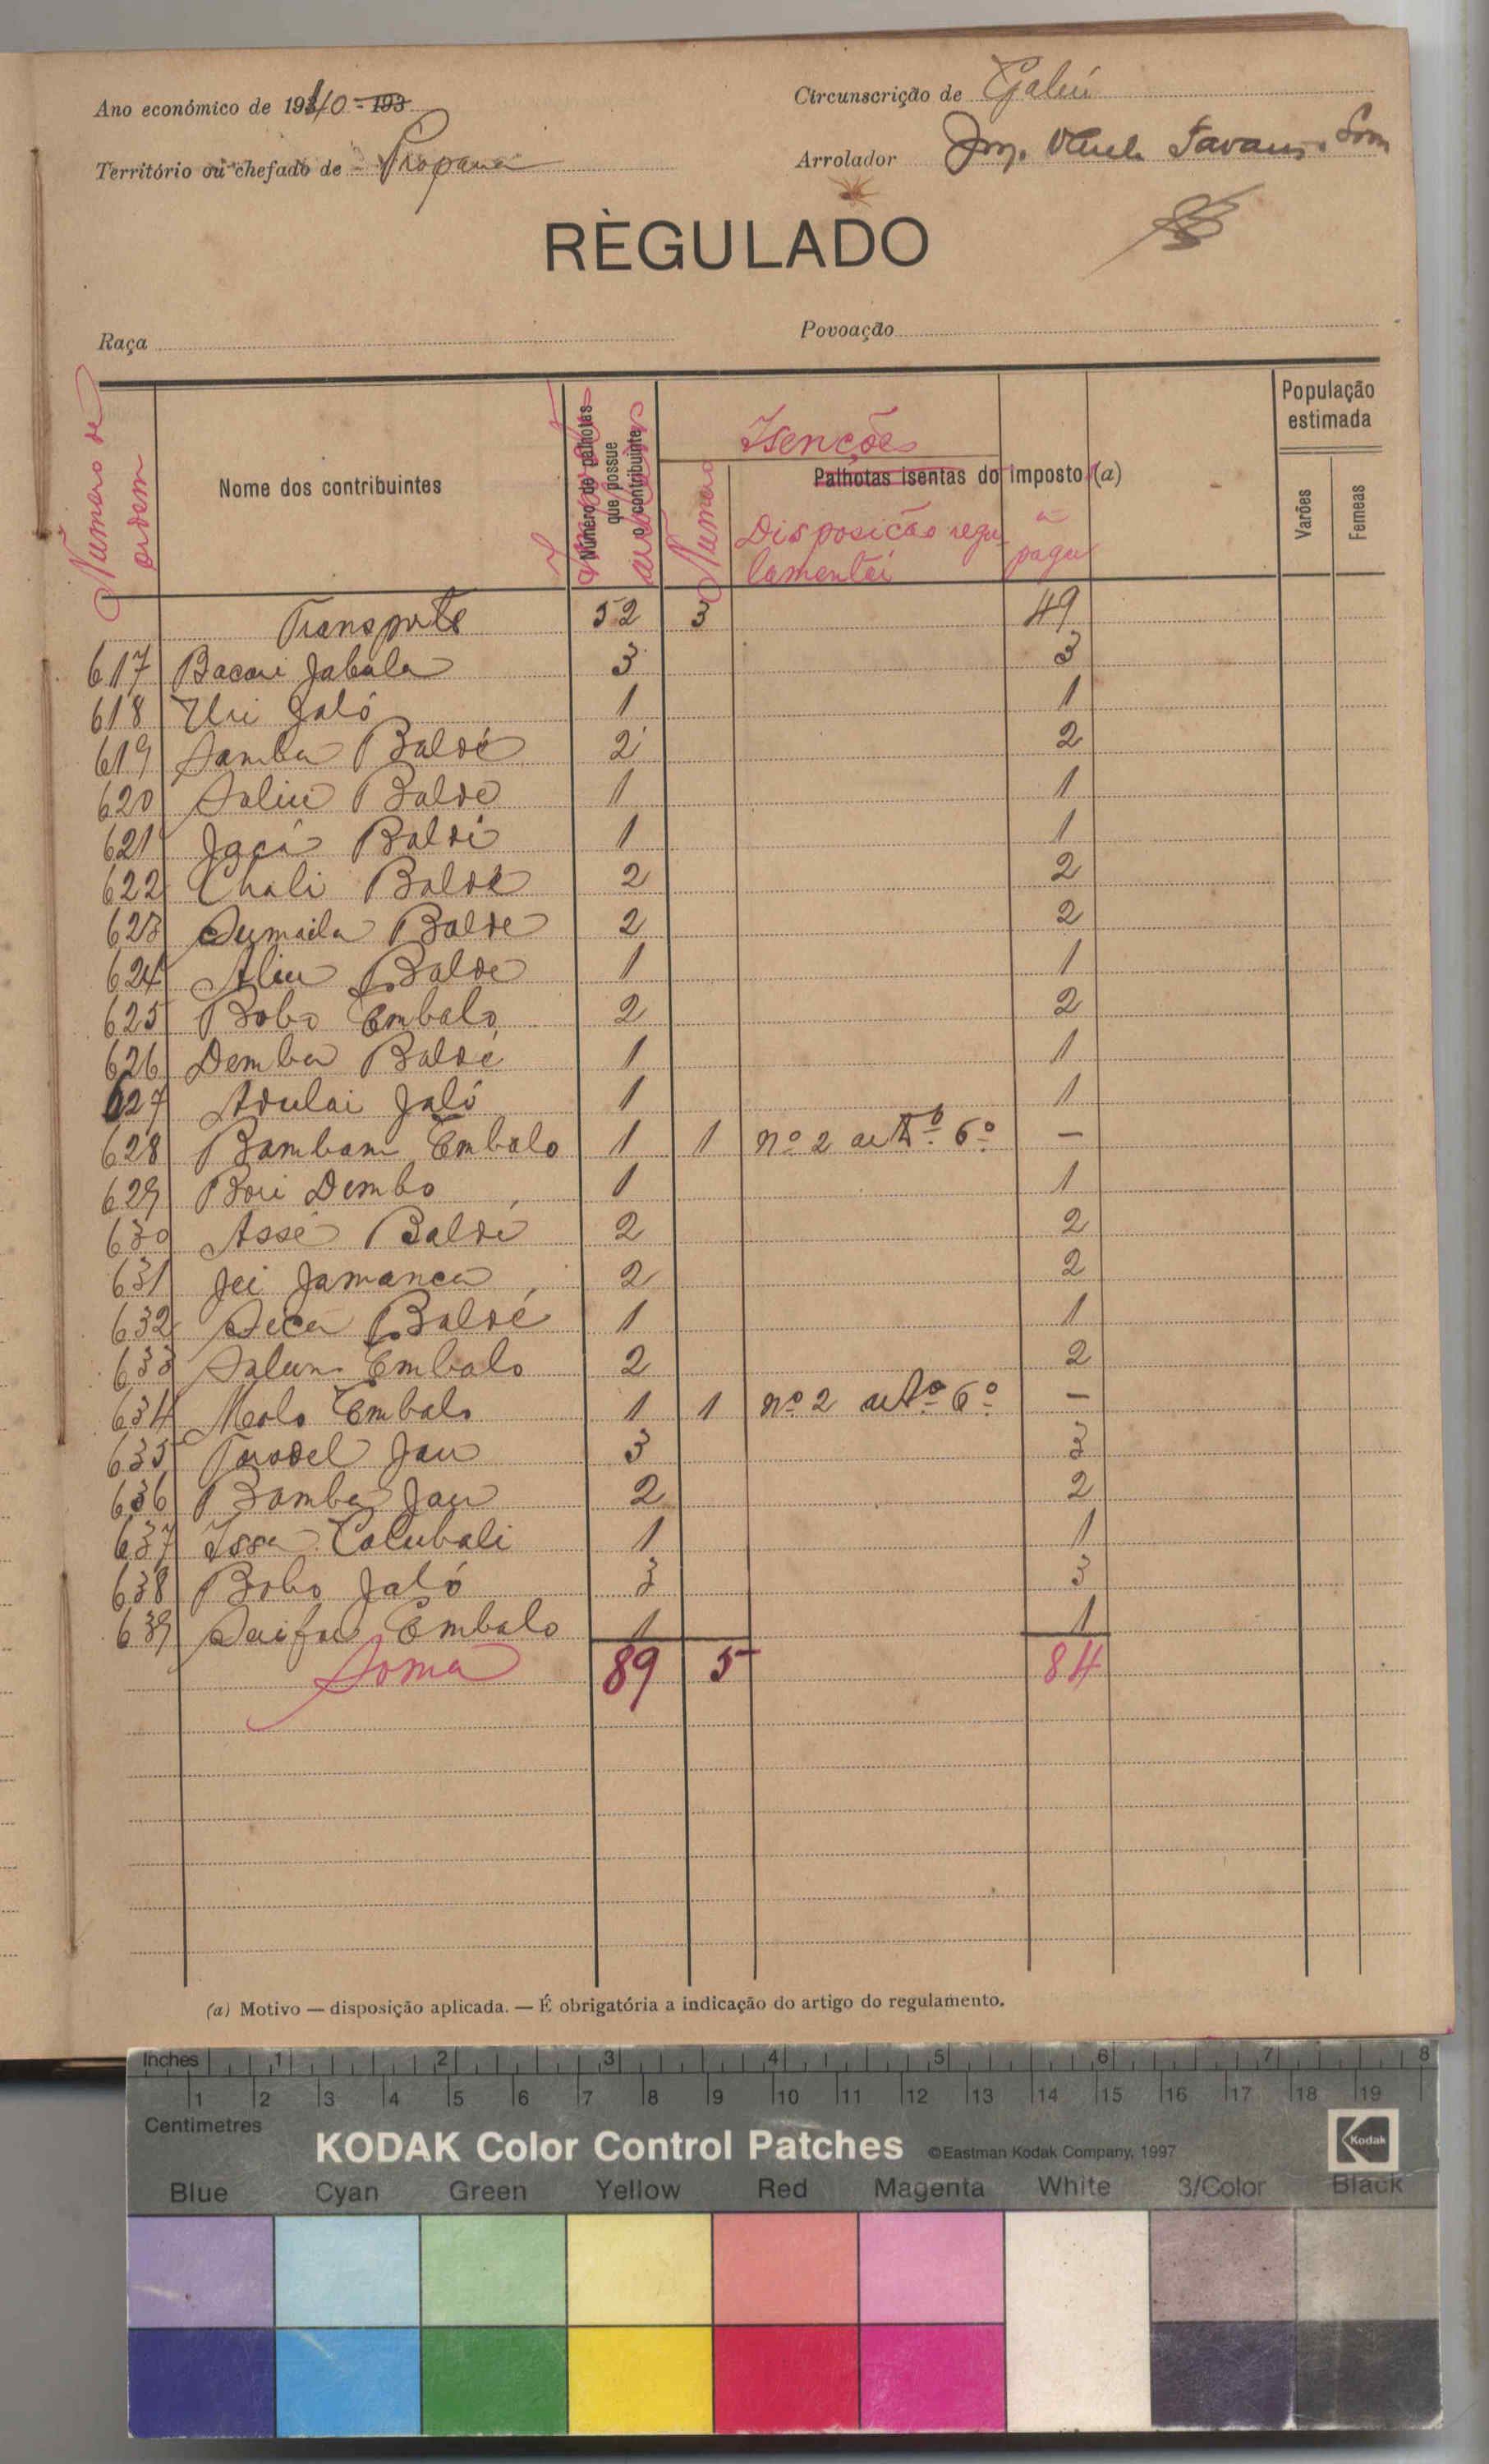 Ano económico de 1940 - 193
Circunscrição de Gabú
Território ou chefado de Propana
Arrolador
RÈGULADO
Raça
Povoação
Número de ordem
Nome dos contribuintes
Número de palhotas que possue o contribuinte
Isenções
Número
Palhotas isentas do imposto (a)
Disposição regulamentar
a pagar
População estimada
Varões
Femeas
Transporte 52 3 49
617 Bacari Jabula 3 3
618 Uri Jaló 1 1
619 Samba Baldé 2 2
620 Saliu Balde 1 1
621 Jaca Baldé 1 1
622 Chali Baldé 2 2
623 Sumaila Balde 2 2
624 Aliu Balde 1 1
625 Bobo Embalo 2 2
626 Demba Baldé 1 1
627 Adulai Jaló 1 1
628 Bambam Embalo 1 1 nº 2 artº. 6º —
629 Bori Dembo 1 1
630 Assé Baldé 2 2
631 Jei Jamanca 2 2
632 Seca Baldé 1 1
633 Salum Embalo 2 2
634 Molo Embalo 1 1 nº 2 artº 6º —
635 Parodel Jau 3 3
636 Bamba Jau 2 2
637 Issa Colubali 1 1
638 Bobo Jaló 3 3
639 Saifu Embalo 1 1
Soma 89 5 84
(a) Motivo — disposição aplicada. — É obrigatória a indicação do artigo do regulamento.
Inches 1 2 3 4 5 6 7 8
1 2 3 4 5 6 7 8 9 10 11 12 13 14 15 16 17 18 19
Centimetres
KODAK Color Control Patches ©Eastman Kodak Company, 1997 Kodak
Blue Cyan Green Yellow Red Magenta White 3/Color Black